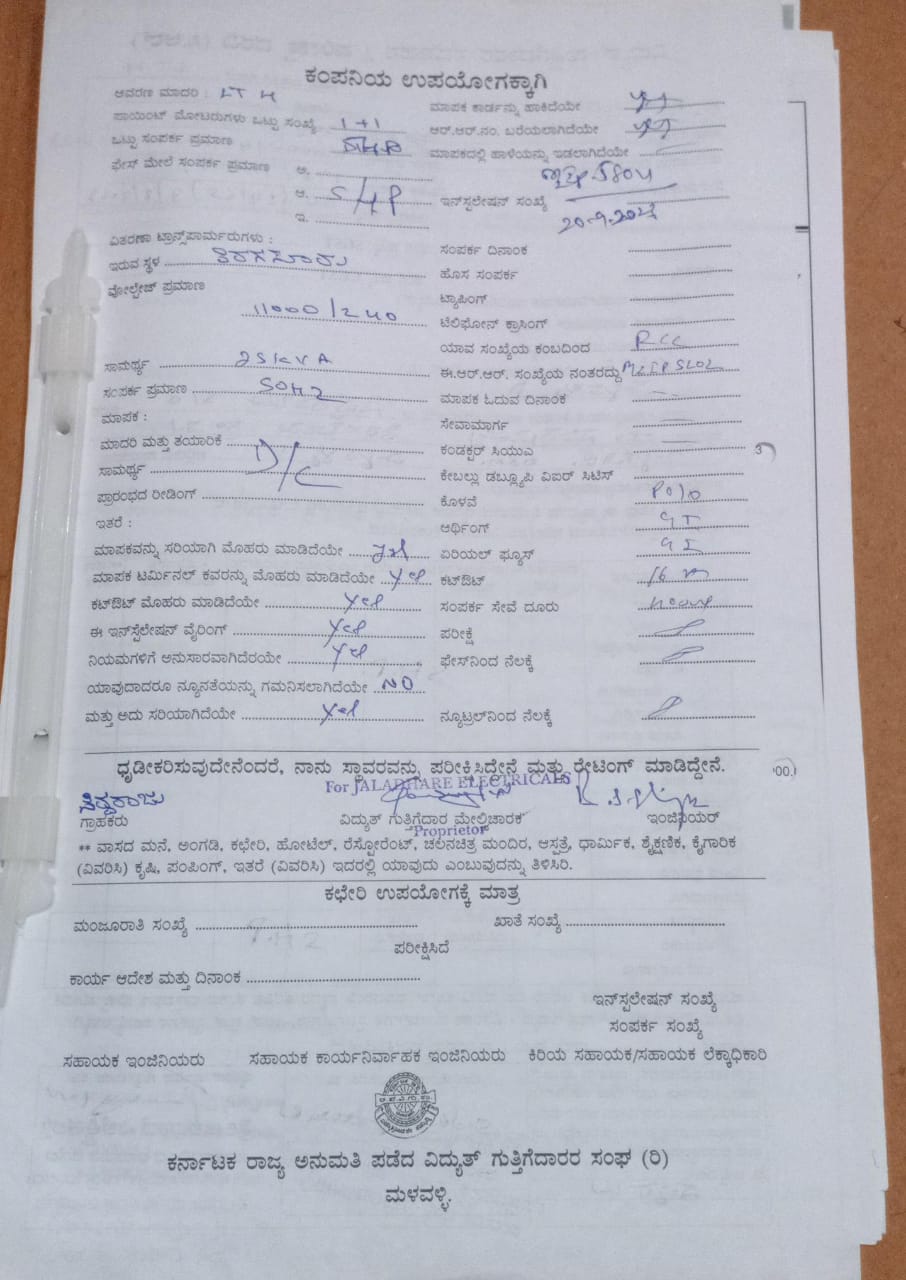 ಕಂಪನಿಯ ಉಪಯೋಗಕ್ಕಾಗಿ
ಆವರಣ ಮಾದರಿ : LT 4 ಮಾಪಕ ಕಾರ್ಡನ್ನು ಹಾಕಿದೆಯೇ
ಪಾಯಿಂಟ್ ಮೋಟರುಗಳು ಒಟ್ಟು ಸಂಖ್ಯೆ 1+1 ಆರ್.ಆರ್.ನಂ. ಬರೆಯಲಾಗಿದೆಯೇ
ಒಟ್ಟು ಸಂಪರ್ಕ ಪ್ರಮಾಣ ಮಾಪಕದಲ್ಲಿ ಹಾಳೆಯನ್ನು ಇಡಲಾಗಿದೆಯೇ
ಫೇಸ್ ಮೇಲೆ ಸಂಪರ್ಕ ಪ್ರಮಾಣ ಅ.
ಆ. ಇನ್‌ಸ್ಟಲೇಷನ್ ಸಂಖ್ಯೆ
ಇ.
ವಿತರಣಾ ಟ್ರಾನ್ಸ್‌ಪಾರ್ಮರುಗಳು : ಸಂಪರ್ಕ ದಿನಾಂಕ
ಇರುವ ಸ್ಥಳ ಹೊಸ ಸಂಪರ್ಕ
ವೋಲ್ಟೇಜ್ ಪ್ರಮಾಣ ಟ್ಯಾಪಿಂಗ್
11000/240 ಟೆಲಿಫೋನ್ ಕ್ರಾಸಿಂಗ್
ಯಾವ ಸಂಖ್ಯೆಯ ಕಂಬದಿಂದ RCC
ಸಾಮರ್ಥ್ಯ 25KVA ಈ.ಆರ್.ಆರ್. ಸಂಖ್ಯೆಯ ನಂತರದ್ದು
ಸಂಪರ್ಕ ಪ್ರಮಾಣ 50HZ ಮಾಪಕ ಓದುವ ದಿನಾಂಕ
ಮಾಪಕ : ಸೇವಾಮಾರ್ಗ
ಮಾದರಿ ಮತ್ತು ತಯಾರಿಕೆ ಕಂಡಕ್ಟರ್ ಸಿಯುವ
ಸಾಮರ್ಥ್ಯ D/C ಕೇಬಲ್ಲು ಡಬ್ಲ್ಯೂಪಿ ವಿಐರ್ ಸಿಟಿಸ್
ಪ್ರಾರಂಭದ ರೀಡಿಂಗ್ ಕೊಳವೆ
ಇತರೆ : ಆರ್ಥಿಂಗ್ GI
ಮಾಪಕವನ್ನು ಸರಿಯಾಗಿ ಮೊಹರು ಮಾಡಿದೆಯೇ yes ಏರಿಯಲ್ ಫ್ಯೂಸ್ GI
ಮಾಪಕ ಟರ್ಮಿನಲ್ ಕವರನ್ನು ಮೊಹರು ಮಾಡಿದೆಯೇ yes ಕಟ್‌ಔಟ್
ಕಟ್‌ಔಟ್ ಮೊಹರು ಮಾಡಿದೆಯೇ yes ಸಂಪರ್ಕ ಸೇವೆ ದೂರು
ಈ ಇನ್‌ಸ್ಟೆಲೇಷನ್ ವೈರಿಂಗ್ yes ಪರೀಕ್ಷೆ
ನಿಯಮಗಳಿಗೆ ಅನುಸಾರವಾಗಿದೆರಯೇ yes ಫೇಸ್‌ನಿಂದ ನೆಲಕ್ಕೆ
ಯಾವುದಾದರೂ ನ್ಯೂನತೆಯನ್ನು ಗಮನಿಸಲಾಗಿದೆಯೇ NO
ಮತ್ತು ಅದು ಸರಿಯಾಗಿದೆಯೇ yes ನ್ಯೂಟ್ರಲ್‌ನಿಂದ ನೆಲಕ್ಕೆ
ಧೃಡೀಕರಿಸುವುದೇನೆಂದರೆ, ನಾನು ಸ್ಥಾವರವನ್ನು ಪರೀಕ್ಷಿಸಿದ್ದೇನೆ ಮತ್ತು ರೇಟಿಂಗ್ ಮಾಡಿದ್ದೇನೆ.
For JALADHARE ELECTRICALS
ಗ್ರಾಹಕರು ವಿದ್ಯುತ್ ಗುತ್ತಿಗೆದಾರ ಮೇಲ್ವಿಚಾರಕ ಇಂಜಿನಿಯರ್
Proprietor
** ವಾಸದ ಮನೆ, ಅಂಗಡಿ, ಕಛೇರಿ, ಹೋಟೆಲ್, ರೆಸ್ಟೋರೆಂಟ್, ಚಲನಚಿತ್ರ ಮಂದಿರ, ಆಸ್ಪತ್ರೆ, ಧಾರ್ಮಿಕ, ಶೈಕ್ಷಣಿಕ, ಕೈಗಾರಿಕ
(ವಿವರಿಸಿ) ಕೃಷಿ, ಪಂಪಿಂಗ್, ಇತರೆ (ವಿವರಿಸಿ) ಇದರಲ್ಲಿ ಯಾವುದು ಎಂಬುವುದನ್ನು ತಿಳಿಸಿರಿ.
ಕಛೇರಿ ಉಪಯೋಗಕ್ಕೆ ಮಾತ್ರ
ಮಂಜೂರಾತಿ ಸಂಖ್ಯೆ ಖಾತೆ ಸಂಖ್ಯೆ
ಪರೀಕ್ಷಿಸಿದೆ
ಕಾರ್ಯ ಆದೇಶ ಮತ್ತು ದಿನಾಂಕ
ಇನ್‌ಸ್ಪಲೇಷನ್ ಸಂಖ್ಯೆ
ಸಂಪರ್ಕ ಸಂಖ್ಯೆ
ಸಹಾಯಕ ಇಂಜಿನಿಯರು ಸಹಾಯಕ ಕಾರ್ಯನಿರ್ವಾಹಕ ಇಂಜಿನಿಯರು ಕಿರಿಯ ಸಹಾಯಕ/ಸಹಾಯಕ ಲೆಕ್ಕಾಧಿಕಾರಿ
ಕರ್ನಾಟಕ ರಾಜ್ಯ ಅನುಮತಿ ಪಡೆದ ವಿದ್ಯುತ್ ಗುತ್ತಿಗೆದಾರರ ಸಂಘ (ರಿ)
ಮಳವಳ್ಳಿ.